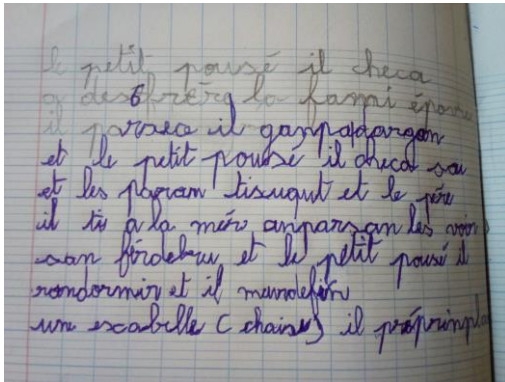 le petit pousé il checa
a des 6 frérg la fami épouse
il parseo il ganpadargan
et le petit pousé il checa sou
et les param tisugut et le père
il tis a la mér anparsan les voir
san ferdebru et le petit pousé il
rondormir et il meurdefin
une escabelle (chaise) il préprinpla